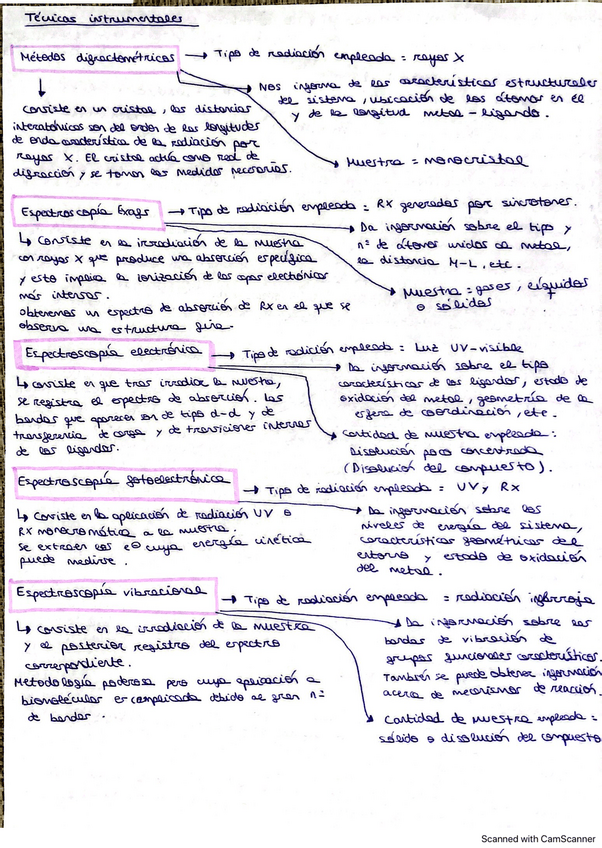 Técnicas instrumentales
Métodos difractométricos → Tipo de radiación empleada = rayos X
Nos informa de las características estructurales
del sistema, ubicación de los átomos en él
y de la longitud metal-ligando.
Muestra = monocristal
Consiste en un cristal, las distancias
interatómicas son del orden de las longitudes
de onda característica de la radiación por
rayos X. El cristal actúa como red de
difracción y se toman las medidas necesarias.
Espectroscopía Exafs → Tipo de radiación empleada = RX generados por sincrotones.
Da información sobre el tipo y
nº de átomos unidos al metal,
la distancia M-L, etc.
Muestra = gases, líquidos
o sólidos
↳ Consiste en la irradiación de la muestra
con rayos X que produce una absorción específica
y esto implica la ionización de las capas electrónicas
más internas.
obtenemos un espectro de absorción de RX en el que se
observa una estructura fina.
Espectroscopía electrónica → Tipo de radición empleada = Luz UV-visible
Da información sobre el tipo
características de los ligandos, estado de
oxidación del metal, geometría de la
esfera de coordinación, etc.
Cantidad de muestra empleada:
Disolución poco concentrada
(Disolución del compuesto).
↳ consiste en que tras irradiar la muestra,
se registra el espectro de absorción. Las
bandas que aparecen son de tipo d-d y de
transferencia de carga y de transiciones internas
de los ligandos.
Espectroscopía fotoelectrónica → Tipo de radiación empleada = UV y RX
Da información sobre los
niveles de energía del sistema,
características geométricas del
entorno y estado de oxidación
del metal.
↳ Consiste en la aplicación de radiación UV o
RX monocromática a la muestra.
Se extraen los e⊖ cuya energía cinética
puede medirse.
Espectroscopía vibracional → Tipo de radiación empleada = radiación infrarroja
Da información sobre las
bandas de vibración de
grupos funcionales característicos.
También se puede obtener información
acerca de mecanismos de reacción.
Cantidad de muestra empleada =
sólido o disolución del compuesto
↳ Consiste en la irradiación de la muestra
y el posterior registro del espectro
correspondiente.
Metodología poderosa pero cuya aplicación a
biomoléculas es complicada debido al gran nº
de bandas.
Scanned with CamScanner